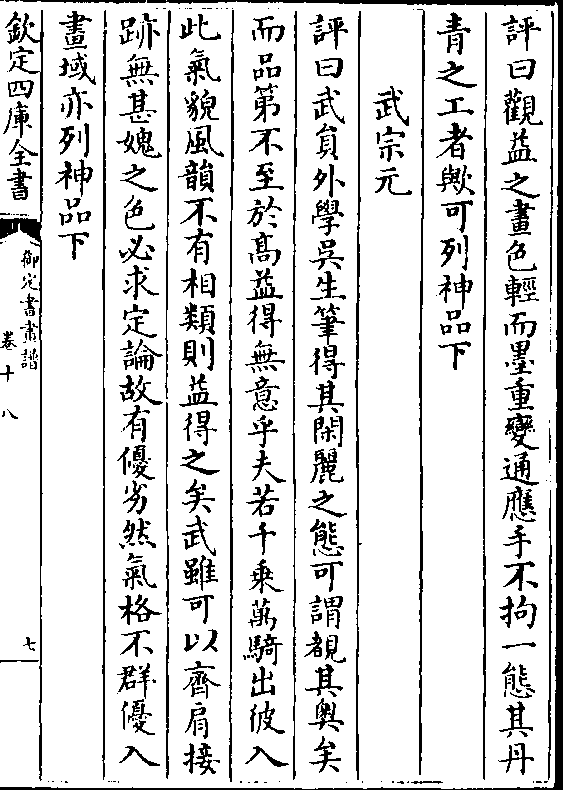 評曰觀益之畫色輕而墨重變通應手不拘一態其丹
青之工者歟可列神品下
武宗元
評曰武員外學吳生筆得其閑麗之態可謂覩其奧矣
而品第不至於高益得無意乎夫若千乘萬騎出彼入
此氣貌風韻不有相類則益得之矣武雖可以齊肩接
跡無甚媿之色必求定論故有優劣然氣格不群優入
畫域亦列神品下
欽定四庫全書
御定書畫譜
卷十八
七